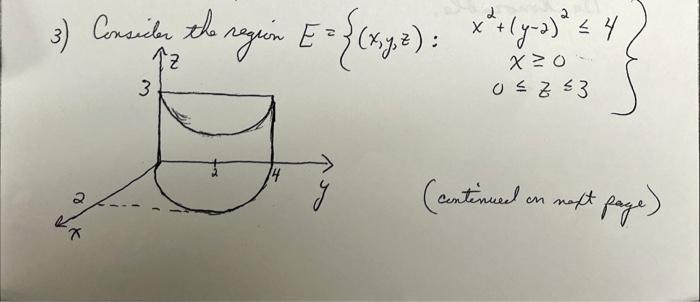 3) Consider the region E = {(x,y,z) : x² + (y-2)² ≤ 4
x ≥ 0
0 ≤ z ≤ 3 }
z
3
2
4
y
2
x
(continued on next page)